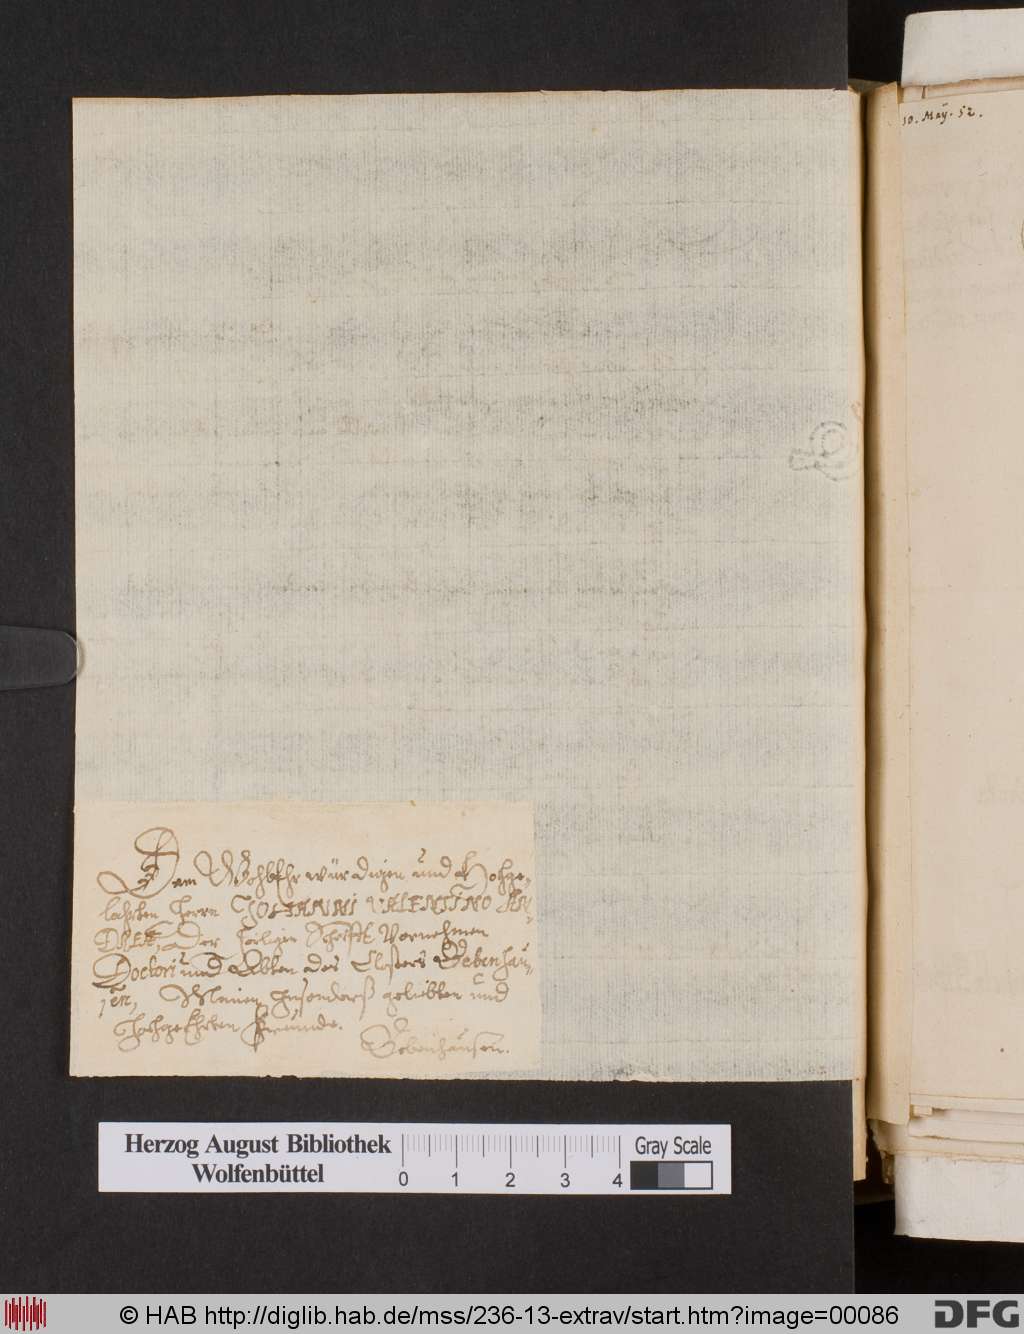 10. Maÿ. 52.
Dem WohlEhrwürdigen und Hochge-
lahrten Herrn JOHANNI VALENTINO AN-
DREÆ, Der heiligen Schrifft Vornehmen
Doctori und Abten des Closters Bebenhau-
sen, Meinen Insonderß geliebten und
Hochgeehrten Freunde.
Bebenhausen.
Herzog August Bibliothek
Wolfenbüttel
0 1 2 3 4
Gray Scale
© HAB http://diglib.hab.de/mss/236-13-extrav/start.htm?image=00086
DFG